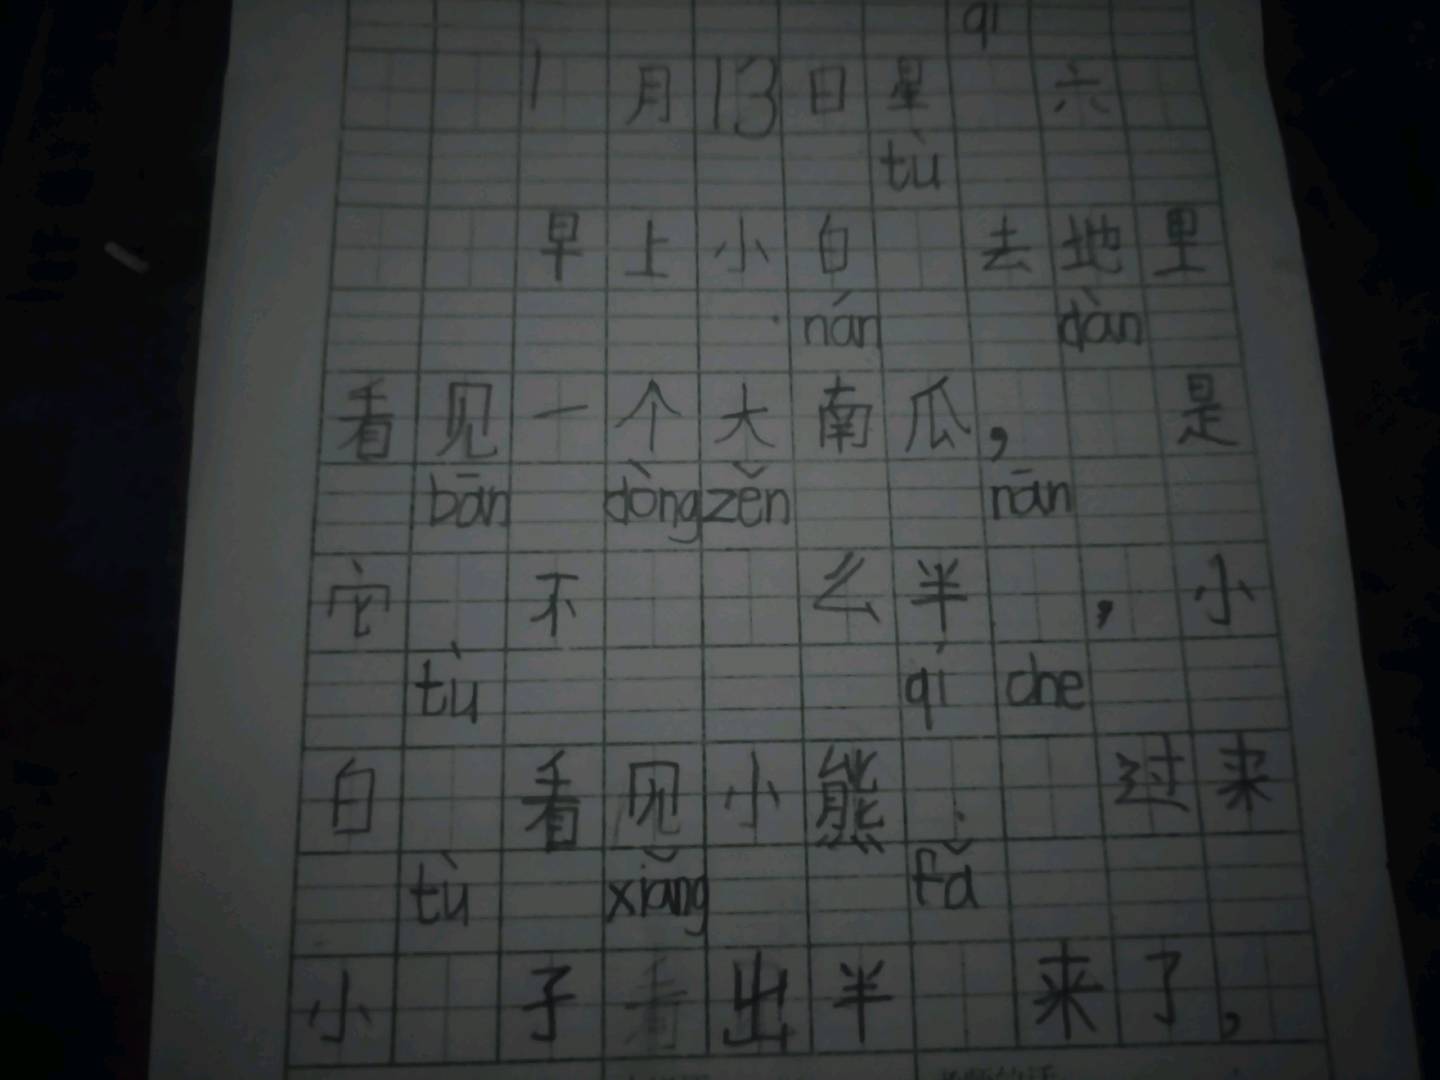 qi
1月13日星 六
tù
早上小白 去地里
nán dàn
看见一个大南瓜, 是
bān dòng zěn nān
它 不 么半 , 小
tù qì che
白 看见小熊 过来
tù xiǎng fǎ
小 子 出半 来了,